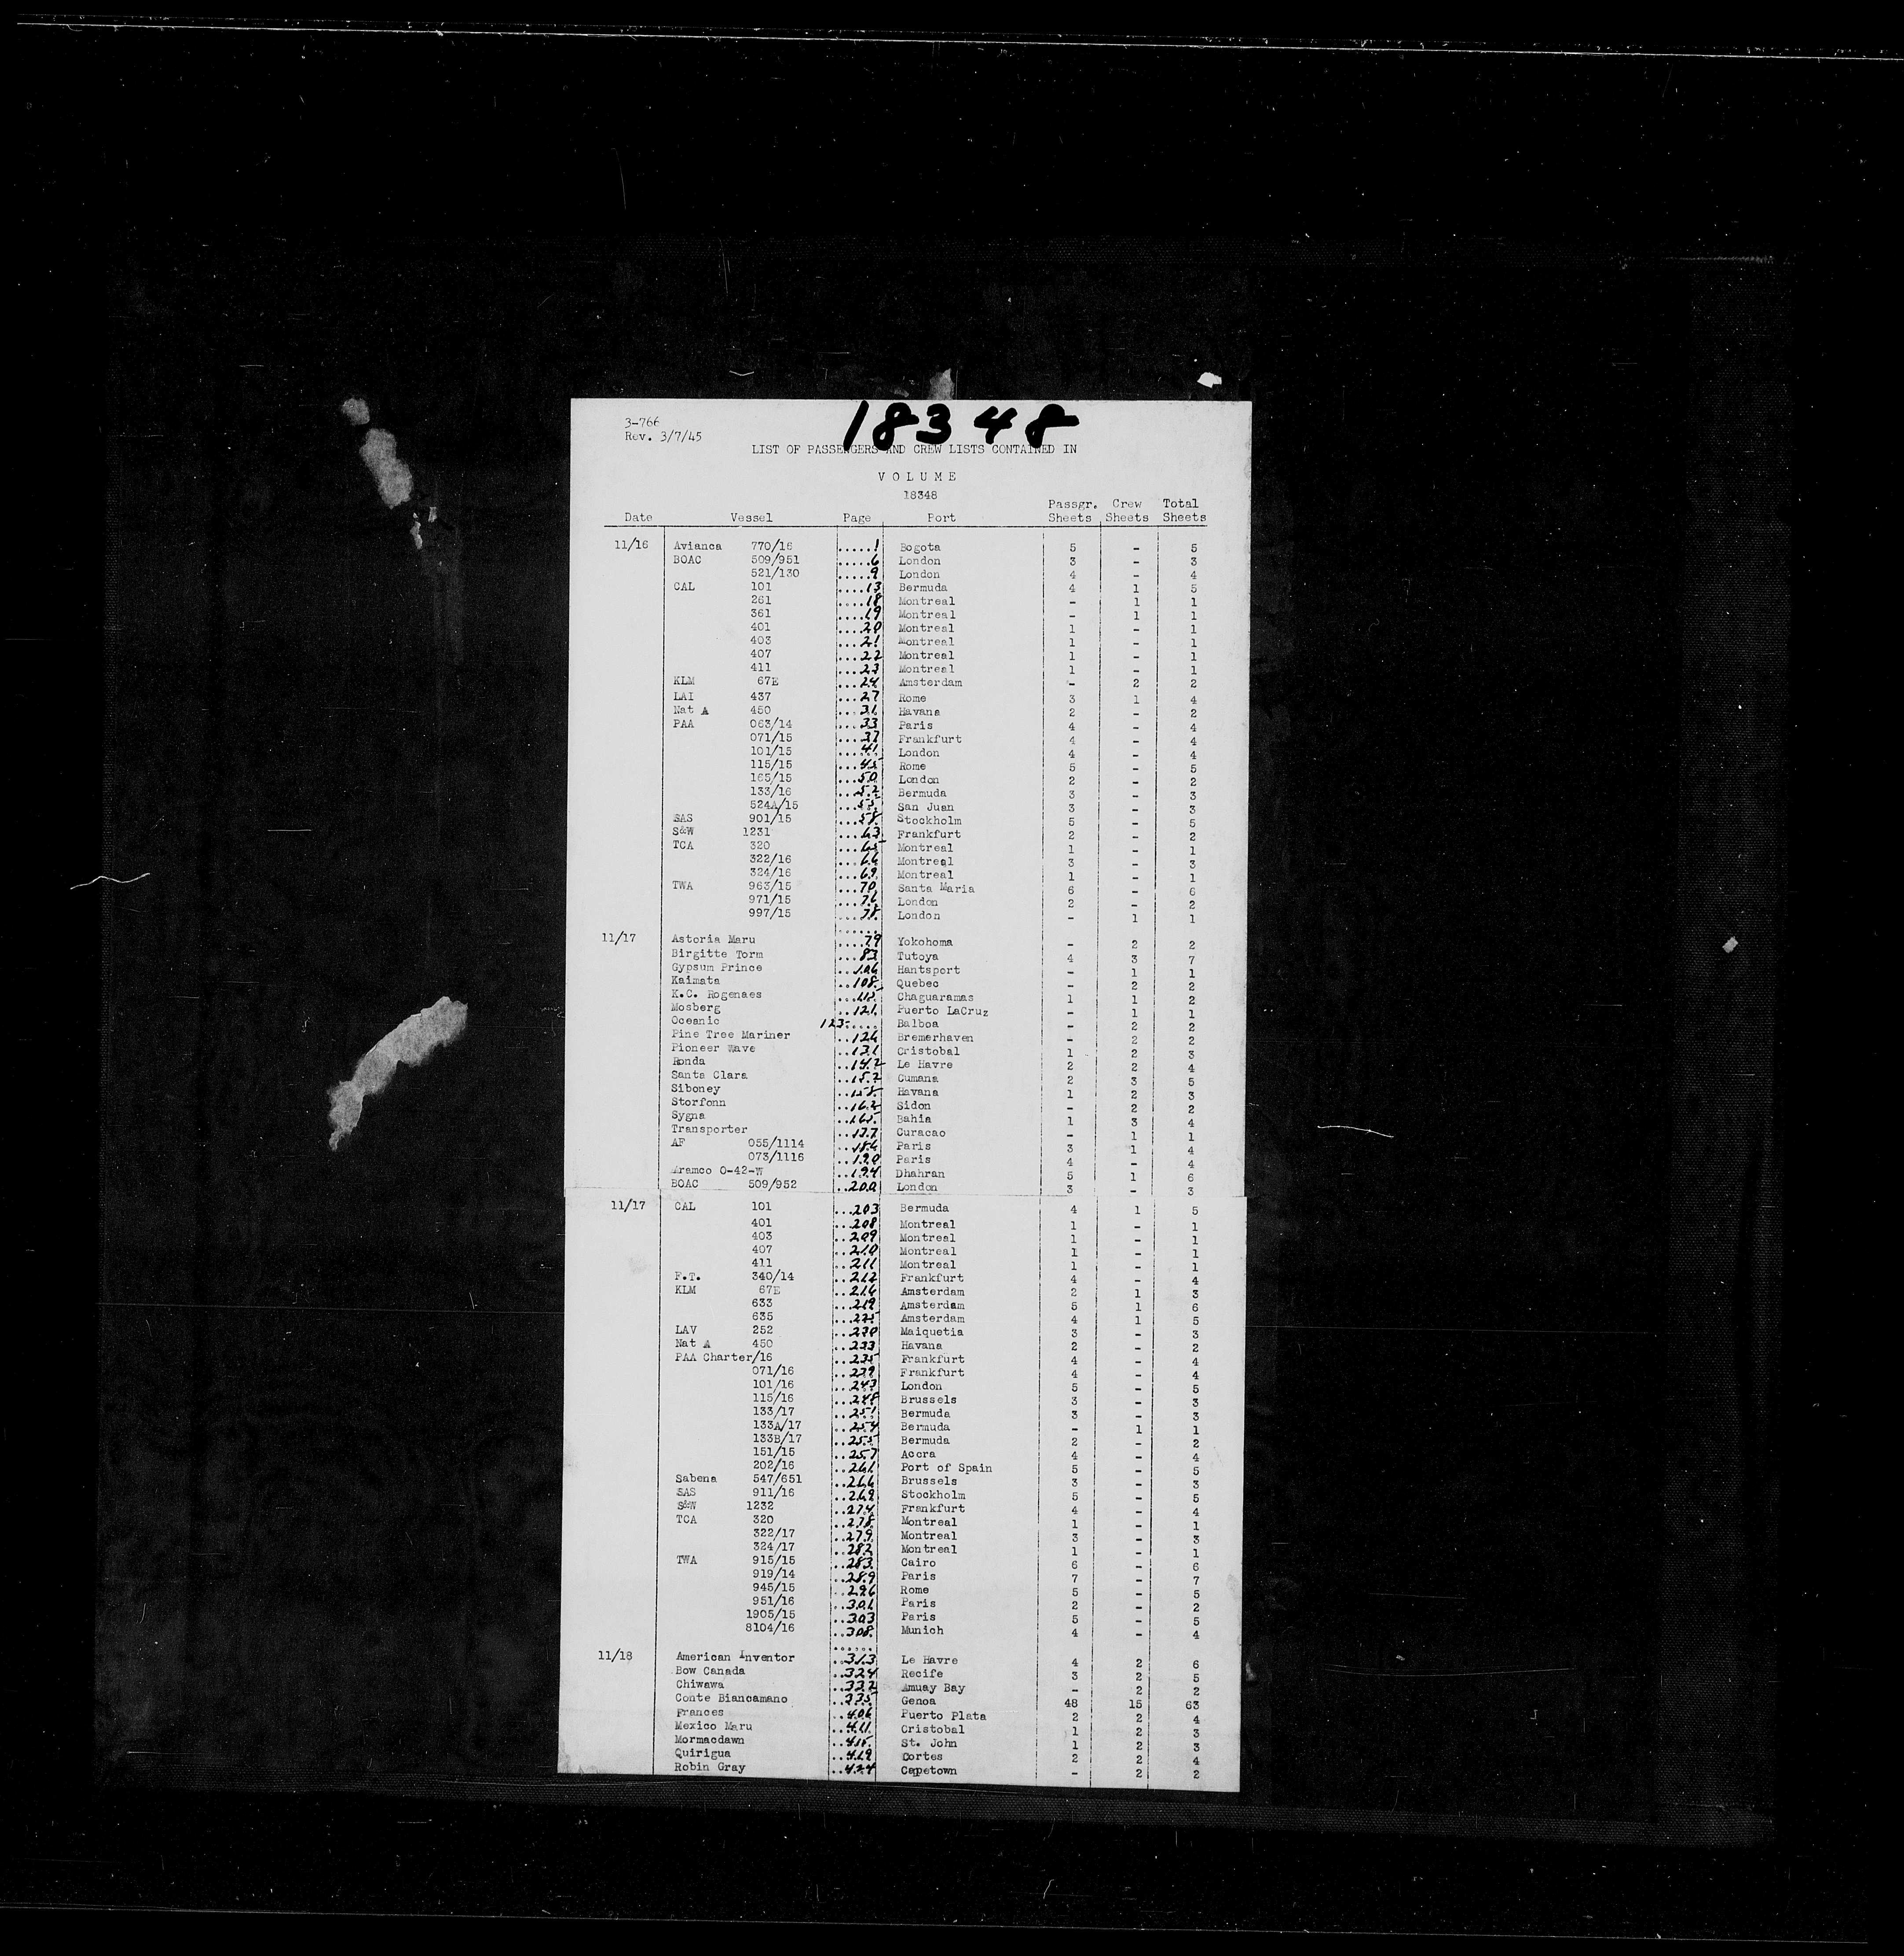 18348
3-766
Rev. 3/7/45
LIST OF PASSENGERS AND CREW LISTS CONTAINED IN
VOLUME
18348
Date Vessel Page Port Passgr. Sheets Crew Sheets Total Sheets
11/16 Avianca 770/16 .....1 Bogota 5 - 5
BOAC 509/951 .....6 London 3 - 3
521/130 .....9 London 4 - 4
CAL 101 ....13 Bermuda 4 1 5
261 ....18 Montreal - 1 1
361 ....19 Montreal - 1 1
401 ....20 Montreal 1 - 1
403 ....21 Montreal 1 - 1
407 ....22 Montreal 1 - 1
411 ....23 Montreal 1 - 1
KLM 67E ....24 Amsterdam - 2 2
LAI 437 ....27 Rome 3 1 4
Nat A 450 ....31 Havana 2 - 2
PAA 063/14 ....33 Paris 4 - 4
071/15 ....37 Frankfurt 4 - 4
101/15 ....41 London 4 - 4
115/15 ....45 Rome 5 - 5
165/15 ....50 London 2 - 2
133/16 ....52 Bermuda 3 - 3
524A/15 ....55 San Juan 3 - 3
SAS 901/15 ....58 Stockholm 5 - 5
S&W 1231 ....63 Frankfurt 2 - 2
TCA 320 ....65 Montreal 1 - 1
322/16 ....66 Montreal 3 - 3
324/16 ....69 Montreal 1 - 1
TWA 963/15 ....70 Santa Maria 6 - 6
971/15 ....76 London 2 - 2
997/15 ....78 London - 1 1
11/17 Astoria Maru ....79 Yokohoma - 2 2
Birgitte Torm ....83 Tutoya 4 3 7
Gypsum Prince ...106 Hantsport - 1 1
Kaimata ..108 Quebec - 2 2
K.C. Rogenaes ...115 Chaguaramas 1 1 2
Mosberg ..121 Puerto LaCruz - 1 1
Oceanic 123..... Balboa - 2 2
Pine Tree Mariner ..126 Bremerhaven - 2 2
Pioneer Wave ..131 Cristobal 1 2 3
Ronda ..142 Le Havre 2 2 4
Santa Clara ..152 Cumana 2 3 5
Siboney ..158 Havana 1 2 3
Storfonn ..162 Sidon - 2 2
Sygna ..165 Bahia 1 3 4
Transporter ..177 Curacao - 1 1
AF 055/1114 ..186 Paris 3 1 4
073/1116 ..190 Paris 4 - 4
Aramco O-42-W ..194 Dhahran 5 1 6
BOAC 509/952 ..200 London 3 - 3
11/17 CAL 101 ...203 Bermuda 4 1 5
401 ..208 Montreal 1 - 1
403 ..209 Montreal 1 - 1
407 ..210 Montreal 1 - 1
411 ..211 Montreal 1 - 1
F.T. 340/14 ..212 Frankfurt 4 - 4
KLM 67E ..216 Amsterdam 2 1 3
633 ..219 Amsterdam 5 1 6
635 ..225 Amsterdam 4 1 5
LAV 252 ..230 Maiquetia 3 - 3
Nat A 450 ..233 Havana 2 - 2
PAA Charter/16 ..235 Frankfurt 4 - 4
071/16 ..239 Frankfurt 4 - 4
101/16 ..243 London 5 - 5
115/16 ..248 Brussels 3 - 3
133/17 ..251 Bermuda 3 - 3
133A/17 ..254 Bermuda - 1 1
133B/17 ..255 Bermuda 2 - 2
151/15 ..257 Accra 4 - 4
202/16 ..261 Port of Spain 5 - 5
Sabena 547/651 ..266 Brussels 3 - 3
SAS 911/16 ..269 Stockholm 5 - 5
S&W 1232 ..274 Frankfurt 4 - 4
TCA 320 ..278 Montreal 1 - 1
322/17 ..279 Montreal 3 - 3
324/17 ..282 Montreal 1 - 1
TWA 915/15 ..283 Cairo 6 - 6
919/14 ..289 Paris 7 - 7
945/15 ..296 Rome 5 - 5
951/16 ..301 Paris 2 - 2
1905/15 ..303 Paris 5 - 5
8104/16 ..308 Munich 4 - 4
11/18 American Inventor ..313 Le Havre 4 2 6
Bow Canada ..324 Recife 3 2 5
Chiwawa ..332 Amuay Bay - 2 2
Conte Biancamano ..335 Genoa 48 15 63
Frances ..406 Puerto Plata 2 2 4
Mexico Maru ..411 Cristobal 1 2 3
Mormacdawn ..415 St. John 1 2 3
Quirigua ..419 Cortes 2 2 4
Robin Gray ..424 Capetown - 2 2